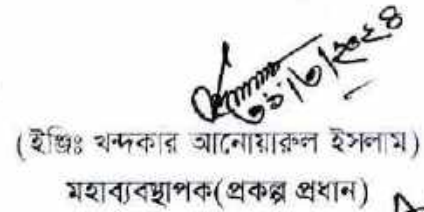 (ইঞ্জিঃ খন্দকার আনোয়ারুল ইসলাম)
মহাব্যবস্থাপক(প্রকল্প প্রধান)